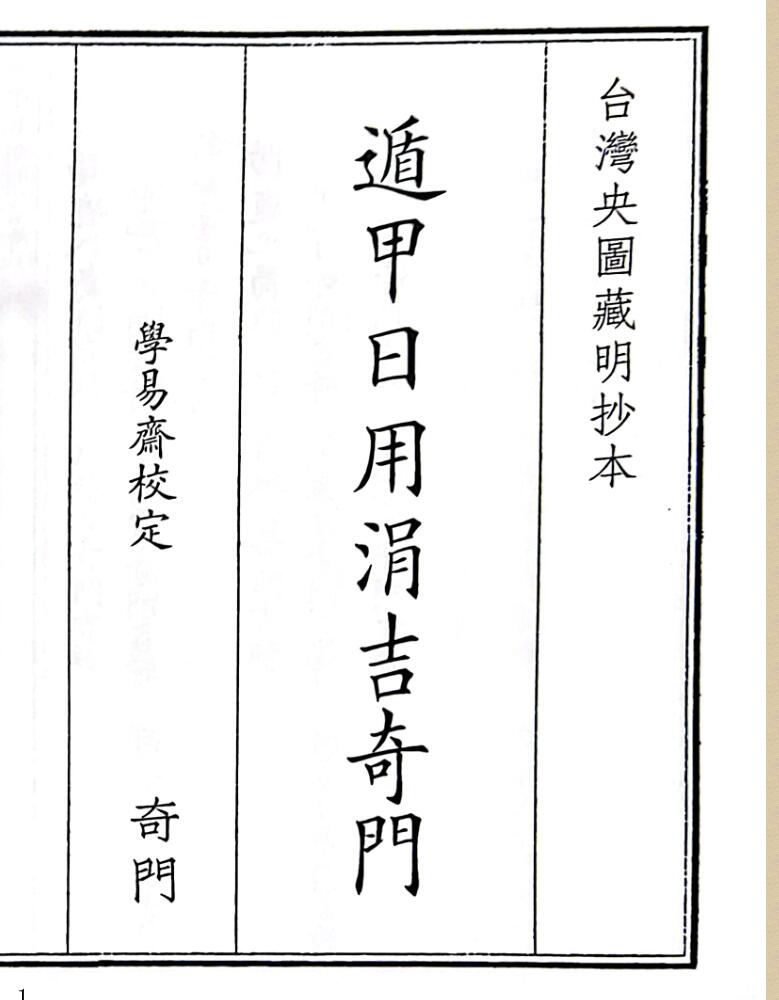 台灣央圖藏明抄本
遁甲日用涓吉奇門
學易齋校定 奇門
1